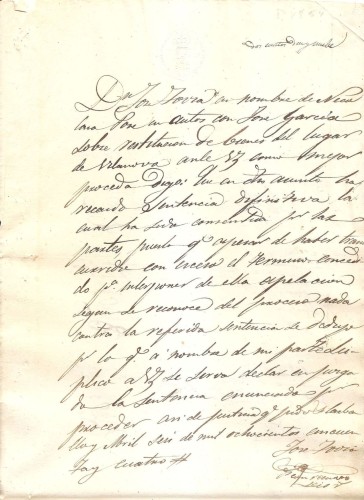 Dn José Tovia en nombre de Nico
lasa Pose en autos con José Garcia
sobre restitucion de bienes del lugar
de Vilanova ante V como mejor
proceda Digo: Que en dho asunto ha
recaido Sentencia definitiva la
cual ha sido consentida por las
partes puesto q apesar de haber tran
currido con exceso el termino concedi
do pa interponer de ella apelacion
segun se reconoce del proceso nada
contra la referida sentencia se dedujo
por lo q a nombre de mi parte Su
plico a V se sirva declar en juzga
do la Sentencia enunciada por
proceder asi de justicia q pido
y Abril seis de mil ochocientos cincuen
ta y cuatro
José Tovia